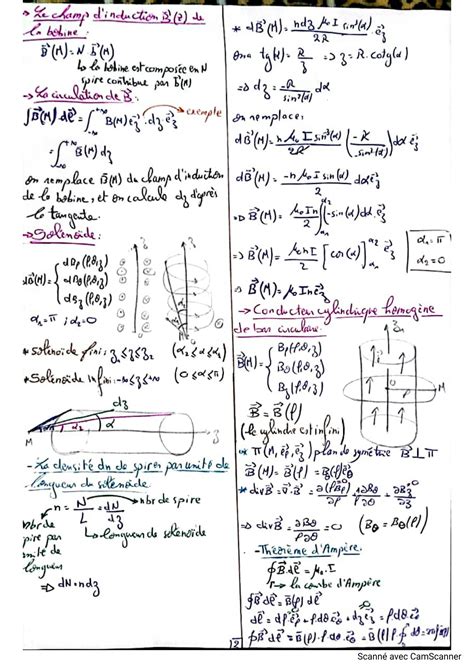 → Le champ d'induction B⃗(z) de
la bobine:
B⃗(M) = N B⃗'(M)
↳ la bobine est composée en N
spire contribue par B⃗(M)
→ La circulation de B⃗:
∫B⃗(M) dℓ⃗ = ∫_{-∞}^{+∞} B(M) e⃗_z . dz e⃗_z → exemple
= ∫_{-∞}^{+∞} B(M) dz
on remplace B⃗(M) du champ d'induction
de la bobine, et on calcule dz d'après
la tangente.
→ Solenoïde:
dB⃗(M) = { dB_ρ(ρ,θ,z)
dB_θ(ρ,θ,z)
dB_z(ρ,θ,z)
α₁ = π ; α₂ = 0
* solenoïde fini: z₁ ≤ z ≤ z₂ (α₂ ≤ α ≤ α₁)
* Solenoïde infini: -∞ ≤ z ≤ +∞ (0 ≤ α ≤ π)
dz
M α₂ α z
- La densité dn de spires par unité de
longueur du solénoïde.
n = N/L = dN/dz → nbr de spire
↳ longueur de solénoïde
nbr de
spire par
unité de
longueur
⇒ dN = ndz
* dB⃗(M) = ndz μ₀ I sin³(α) / 2R e⃗_z
on a tg(α) = R/z ⇒ z = R.cotg(α)
⇒ dz = -R/sin²(α) dα
on remplace:
dB⃗(M) = n μ₀ I sin³(α) / 2R (-R/sin²(α)) dα e⃗_z
dB⃗(M) = -n μ₀ I sin(α) / 2 dα e⃗_z
⇒ B⃗(M) = μ₀ I n / 2 ∫ -sin(α) dα e⃗_z
⇒ B⃗(M) = μ₀ n I / 2 [cos(α)]_{α₁}^{α₂} e⃗_z
α₁ = π
α₂ = 0
⇒ B⃗(M) = μ₀ I n e⃗_z
→ Conducteur cylindrique homogène
de base circulaire.
B⃗(M) = { B_ρ(ρ,θ,z)
B_θ(ρ,θ,z)
B_z(ρ,θ,z)
B⃗ = B⃗(ρ)
(le cylindre est infini)
* π(M, e⃗_ρ, e⃗_z) plan de symétrie B⃗ ⊥ π
B⃗(M) = B⃗(ρ) = B_θ(ρ) e⃗_θ
* div B⃗ = ∇⃗.B⃗ = ∂(ρB_ρ)/ρ∂ρ + ∂B_θ/ρ∂θ + ∂B_z/∂z
⇒ div B⃗ = ∂B_θ/ρ∂θ = 0 (B_θ = B_θ(ρ))
- Théorème d'Ampère.
∮B⃗.dℓ⃗ = μ₀.I
↳ la courbe d'Ampère
∮B⃗ dℓ⃗ = B⃗(ρ) dℓ⃗
12
Scanné avec CamScanner